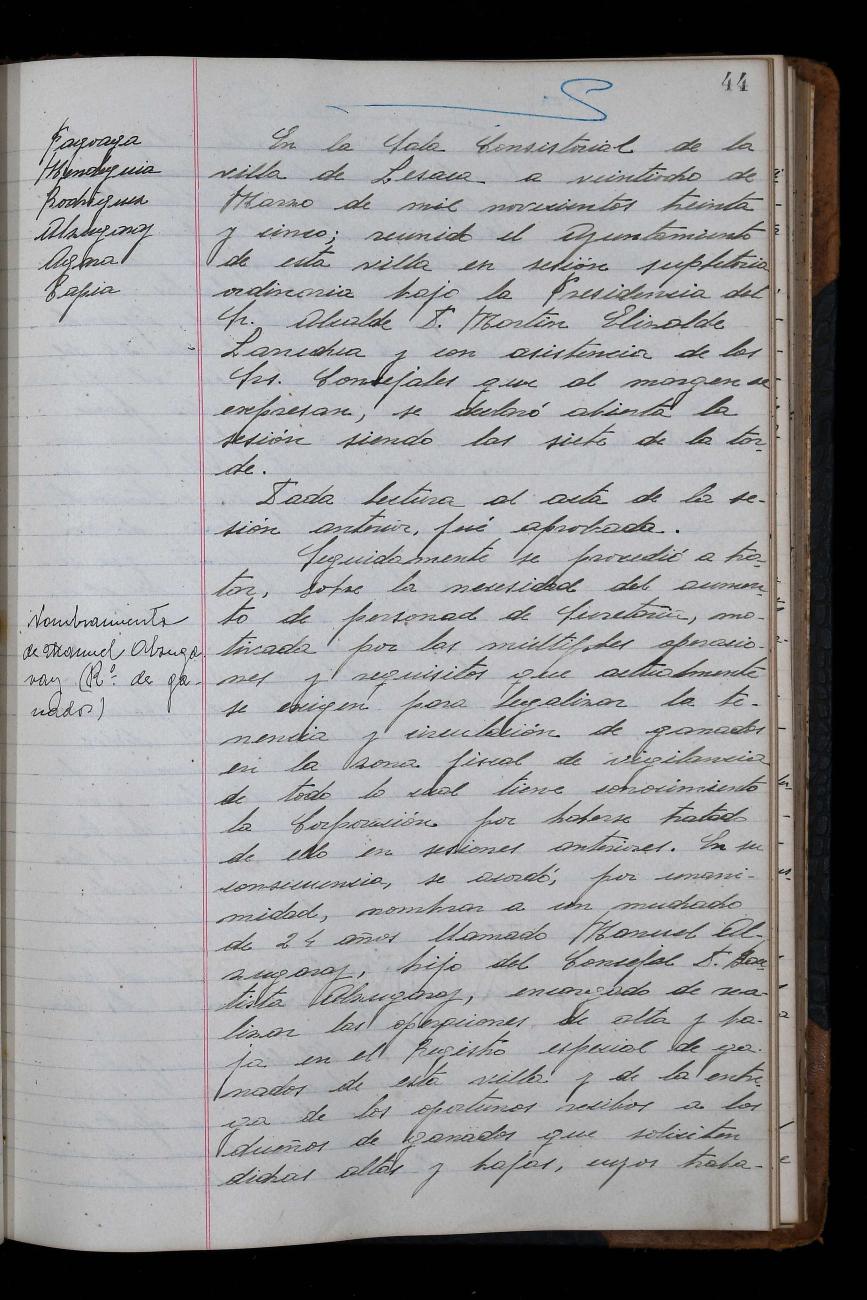 44
Fagoaga
Mendiguia
Rodriguez
Alzugaray
Agara
Tapia
En la Sala Consistorial de la
villa de Lesaca a veintiocho de
Marzo de mil novecientos treinta
y cinco; reunido el Ayuntamiento
de esta villa en sesión supletoria
ordinaria bajo la Presidencia del
Sr. Alcalde D. Martin Elizalde
Lanchea y con asistencia de los
Srs. Concejales que al margen se
expresan, se declaró abierta la
sesión siendo las siete de la tar-
de.
Dada lectura al acta de la se-
sión anterior, fué aprobada.
Seguidamente se procedió a tra-
tar, sobre la necesidad del aumen-
to de personal de Secretaría, mo-
tivada por las múltiples operacio-
nes y requisitos que actualmente
se exigen para legalizar la te-
nencia y circulación de ganados
en la zona fiscal de vigilancia
de todo lo cual tiene conocimiento
la Corporación por haberse tratado
de ello en sesiones anteriores. En su
consecuencia, se acordó, por unani-
midad, nombrar a un muchado
de 24 años llamado Manuel Al-
zugaray, hijo del Concejal D. Bau-
tista Alzugaray, encargado de rea-
lizar las operaciones de alta y ba-
ja en el Registro especial de ga-
nados de esta villa y de la entre-
ga de los oportunos recibos a los
dueños de ganados que soliciten
dichas altas y bajas, cuyos traba-
Nombramiento
de Manuel Alzuga-
ray (Rº. de ga-
nados)